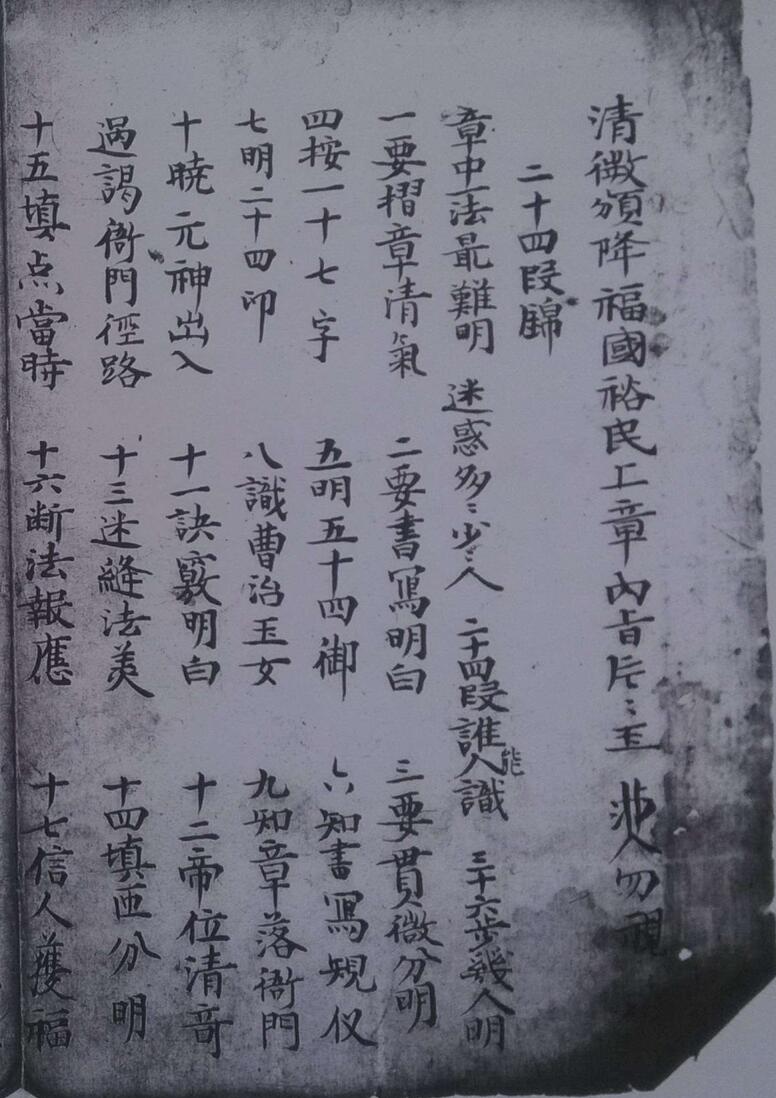 清微頒降福國裕民工章內旨片〻玉 非人勿視
二十四段錦
章中一法最難明 迷惑多〻少〻人 二十四段誰人能識 三十六步幾人明
一要摺章清氣 二要書寫明白 三要貫微分明
四按一十七字 五明五十四御 六知書寫規仪
七明二十四印 八識曹治玉女 九知章落衙門
十曉元神出入 十一訣竅明白 十二帝位清奇
過謁衙門徑路 十三迷縫法美 十四填匝分明
十五填点當時 十六断法報應 十七信人獲福